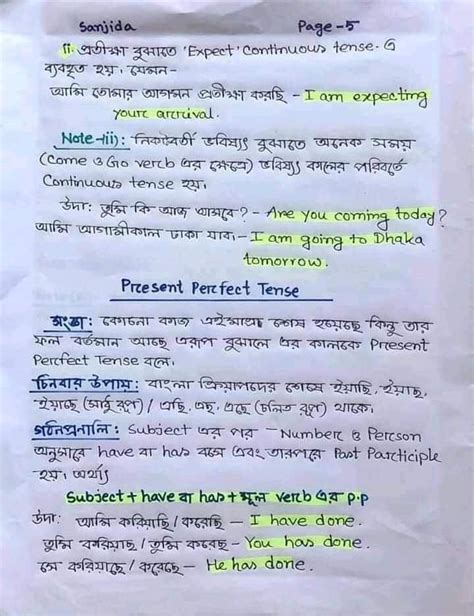 Sanjida Page-5
ii. প্রতীক্ষা বুঝাতে 'Expect' Continuous tense-এ
ব্যবহৃত হয়। যেমন-
আমি তোমার আগমন প্রতীক্ষা করছি - I am expecting
your arrival.
Note-iii): নিকটবর্তী ভবিষ্যৎ বুঝাতে অনেক সময়
(Come ও Go verb এর ক্ষেত্রে) ভবিষ্যৎ কালের পরিবর্তে
Continuous tense হয়।
উদা: তুমি কি আজ আসবে? - Are you coming today?
আমি আগামীকাল ঢাকা যাব। - I am going to Dhaka
tomorrow.
Present Perfect Tense
সংজ্ঞা: কোনো কাজ এইমাত্র শেষ হয়েছে কিন্তু তার
ফল বর্তমান আছে এরূপ বুঝালে এর কালকে Present
Perfect Tense বলে।
চিনবার উপায়: বাংলা ক্রিয়াপদের শেষে ইয়াছি, ইয়াছ,
ইয়াছে (সাধু রূপ) / এছি, এছ, এছে (চলিত রূপ) থাকে।
গঠনপ্রনালি: Subject এর পর - Number ও Person
অনুসারে have বা has বসে এবং তারপরে Past Participle
হয়। অর্থাৎ
Subject + have বা has + মূল verb এর p.p
উদা: আমি করিয়াছি / করেছি - I have done.
তুমি করিয়াছ / তুমি করেছ - You has done.
সে করিয়াছে / করেছে - He has done.